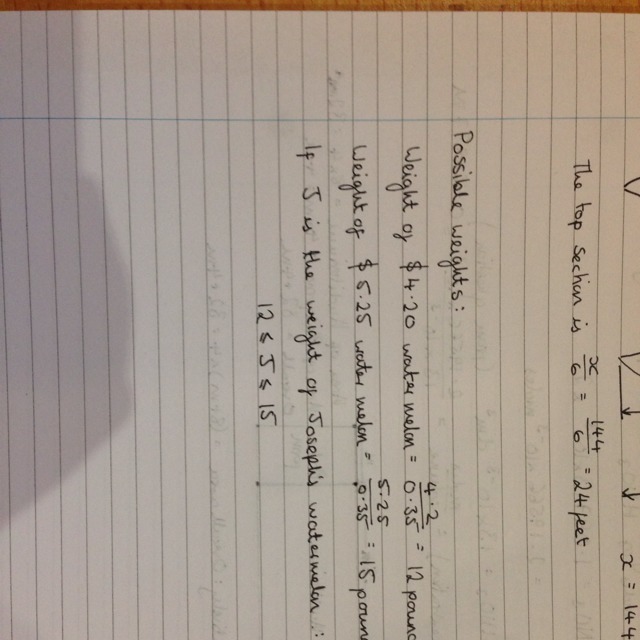 x = 144
The top section is x/6 = 144/6 = 24 feet
Possible weights:
Weight of $4.20 water melon = 4.2/0.35 = 12 poun
Weight of $5.25 water melon = 5.25/0.35 = 15 poun
If J is the weight of Joseph's watermelon:
12 ≤ J ≤ 15